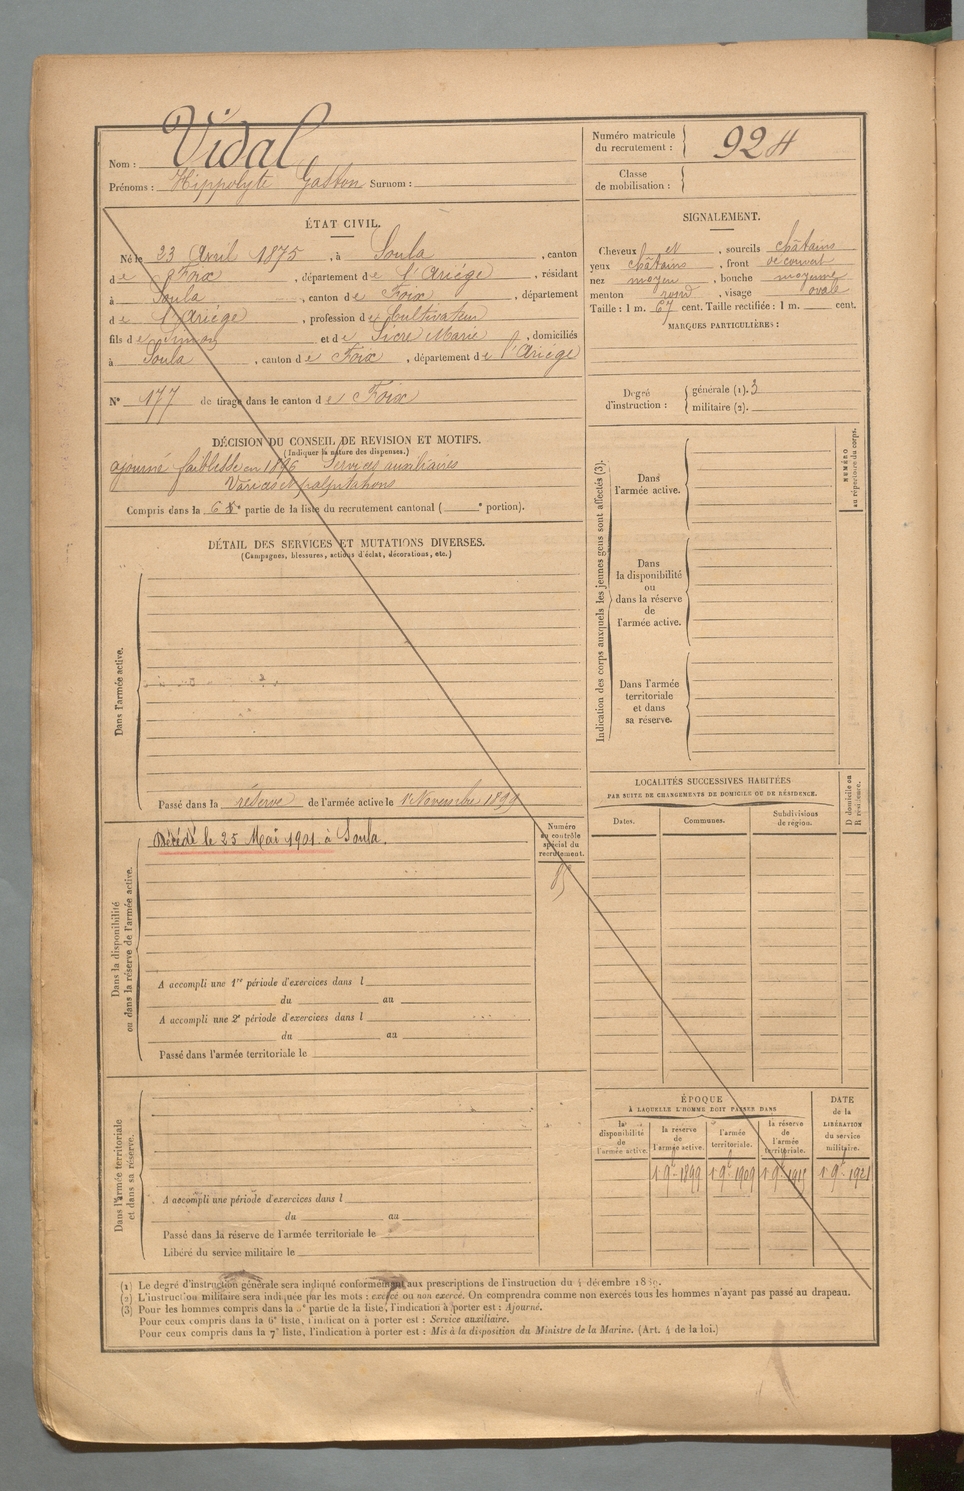 Nom : Vidal
Prénoms : Hippolyte Gaston Surnom :
Numéro matricule du recrutement : 924
Classe de mobilisation :
ÉTAT CIVIL.
Né le 23 Avril 1875, à Soula, canton
de Foix, département de l'Ariége, résidant
à Soula, canton de Foix, département
de l'Ariége, profession de Cultivateur
fils de Simon et de Sicre Marie, domiciliés
à Soula, canton de Foix, département de l'Ariége
N° 177 de tirage dans le canton de Foix
DÉCISION DU CONSEIL DE REVISION ET MOTIFS.
(Indiquer la nature des dispenses.)
ajourné faiblesse en 1896 Services auxiliaires
Varices et palpitations
Compris dans la 6e partie de la liste du recrutement cantonal ( e portion).
DÉTAIL DES SERVICES ET MUTATIONS DIVERSES.
(Campagnes, blessures, actions d'éclat, décorations, etc.)
Dans l'armée active.
Passé dans la réserve de l'armée active le 1r Novembre 1899
Dans la disponibilité
ou dans la réserve de l'armée active.
Décédé le 25 Mai 1901 à Soula.
Numéro
au contrôle
spécial du
recrutement.
A accompli une 1re période d'exercices dans l
du au
A accompli une 2e période d'exercices dans l
du au
Passé dans l'armée territoriale le
Dans l'armée territoriale
et dans sa réserve.
A accompli une période d'exercices dans l
du au
Passé dans la réserve de l'armée territoriale le
Libéré du service militaire le
SIGNALEMENT.
Cheveux et, sourcils châtains
yeux châtains, front découvert
nez moyen, bouche moyenne
menton rond, visage ovale
Taille : 1 m. 67 cent. Taille rectifiée : 1 m. cent.
MARQUES PARTICULIÈRES :
Degré d'instruction :
générale (1). 3
militaire (2).
Indication des corps auxquels les jeunes gens sont affectés (3).
NUMÉRO
au répertoire du corps.
Dans
l'armée active.
Dans
la disponibilité
ou
dans la réserve
de
l'armée active.
Dans l'armée
territoriale
et dans
sa réserve.
LOCALITÉS SUCCESSIVES HABITÉES
PAR SUITE DE CHANGEMENTS DE DOMICILE OU DE RÉSIDENCE.
D domicile ou
R résidence.
Dates. Communes. Subdivisions de région.
ÉPOQUE
À LAQUELLE L'HOMME DOIT PASSER DANS
DATE
de la
LIBÉRATION
du service
militaire.
la disponibilité de l'armée active.
la réserve de l'armée active.
l'armée territoriale.
la réserve de l'armée territoriale.
1 9e 1899 1 9e 1909 1 9e 1915 1 9e 1921
(1) Le degré d'instruction générale sera indiqué conformément aux prescriptions de l'instruction du 4 décembre 1889.
(2) L'instruction militaire sera indiquée par les mots : exercé ou non exercé. On comprendra comme non exercés tous les hommes n'ayant pas passé au drapeau.
(3) Pour les hommes compris dans la partie de la liste, l'indication à porter est : Ajourné.
Pour ceux compris dans la 6e liste, l'indication à porter est : Service auxiliaire.
Pour ceux compris dans la 7e liste, l'indication à porter est : Mis à la disposition du Ministre de la Marine. (Art. 4 de la loi.)